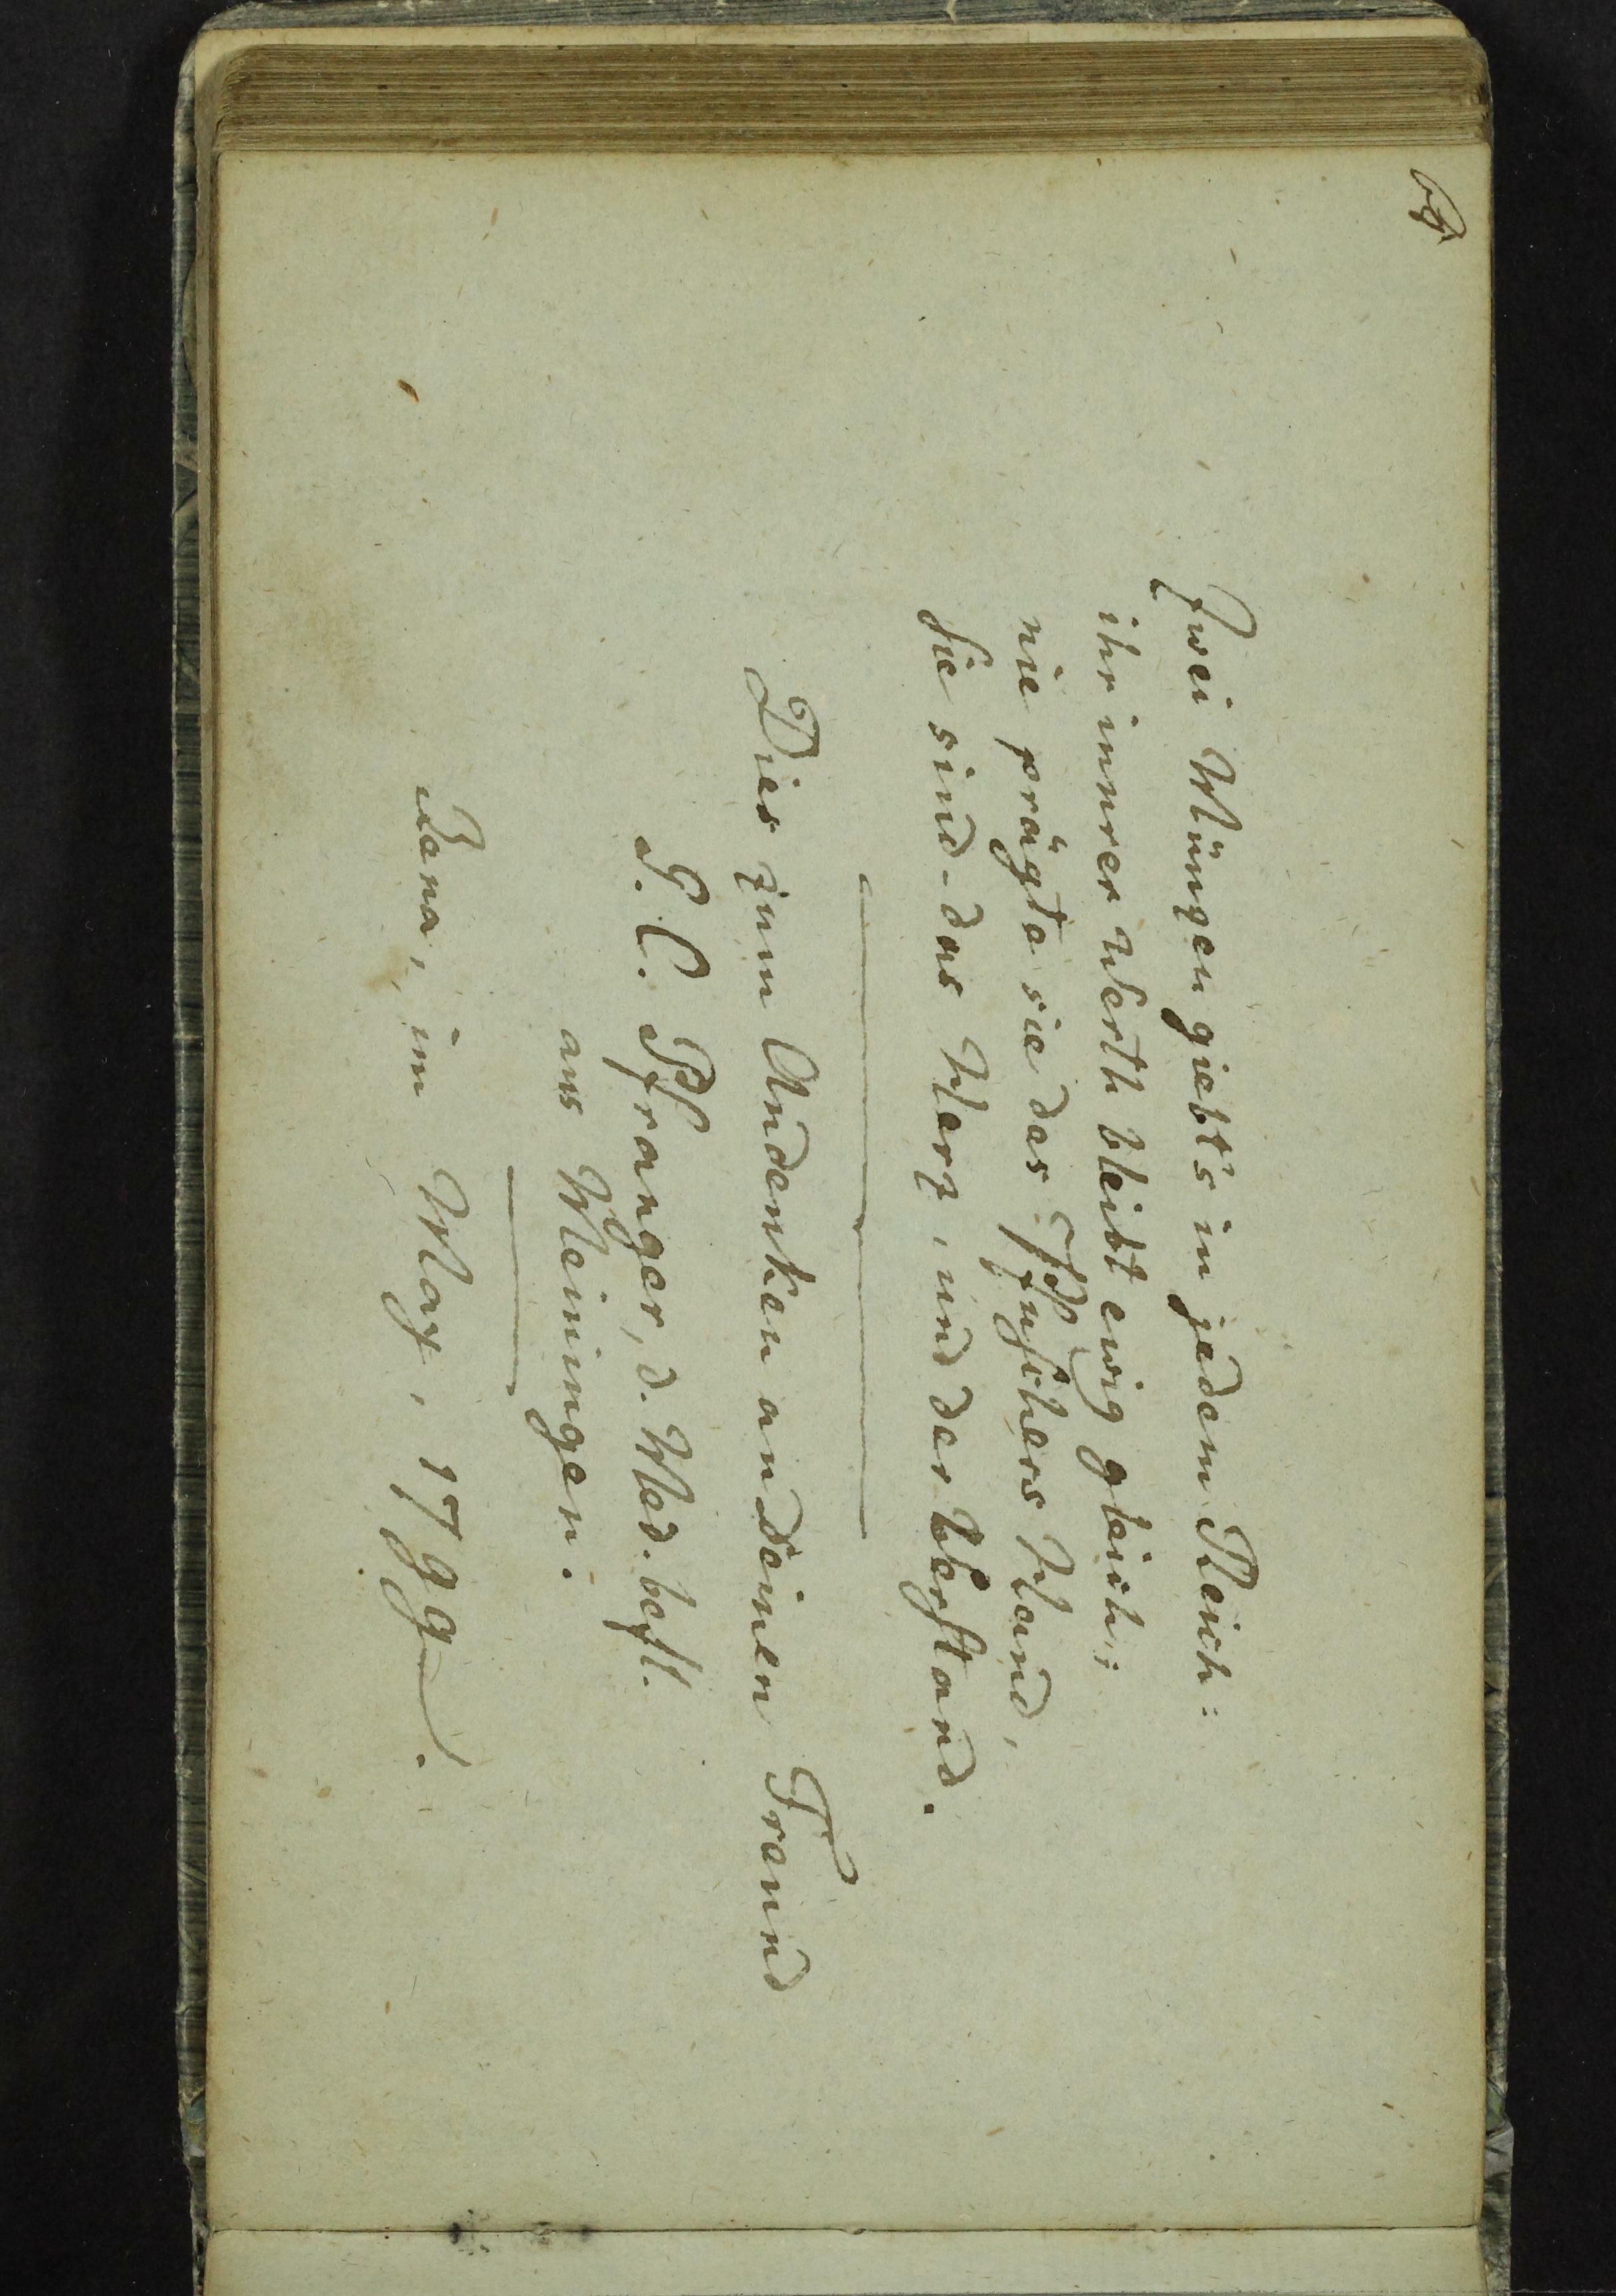 Zwei Münzen giebt's in jedem Reich:
ihr innrer Werth bleibt ewig gleich;
nie prägte sie des Pfuschers Hand,
Sie sind - das Herz, und der Verstand.
Dies zum Andenken an deinen Freund
S. C. Pfranger, d. Med. befl.
aus Meiningen.
Jena, im May, 1799.